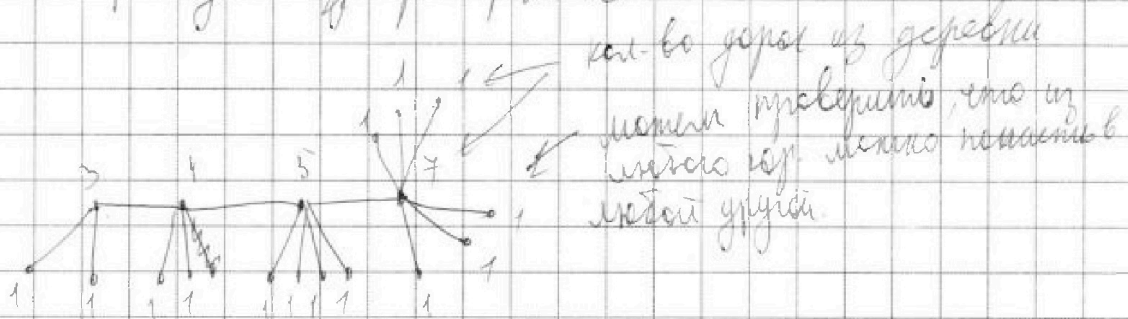 кол-во дорог из деревни
можем проверить, что из
любого гор. можно попасть в
любой другой.
1 1 1
3 4 5 7
1
1
1 1 1 1 1 1 1 1 1